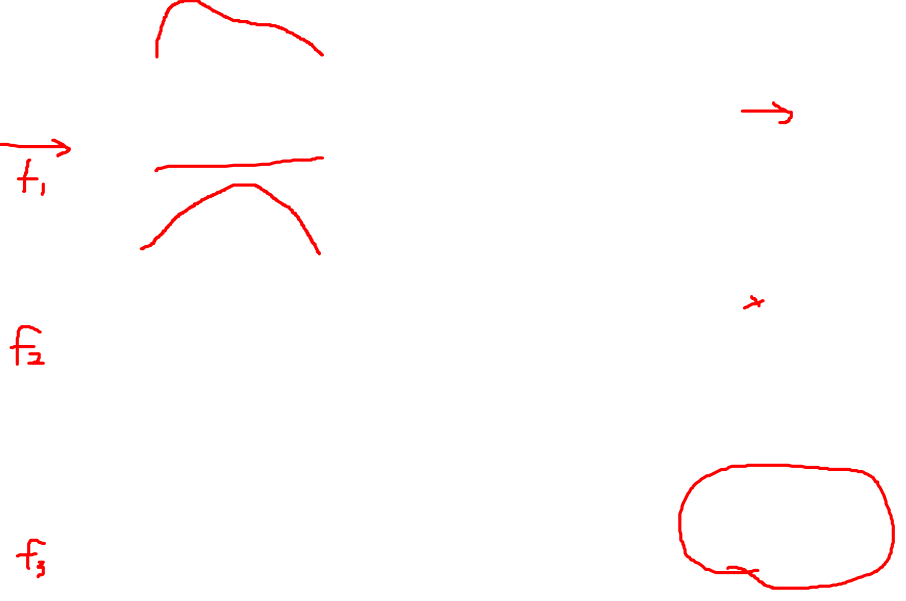 f₁
f₂
f₃